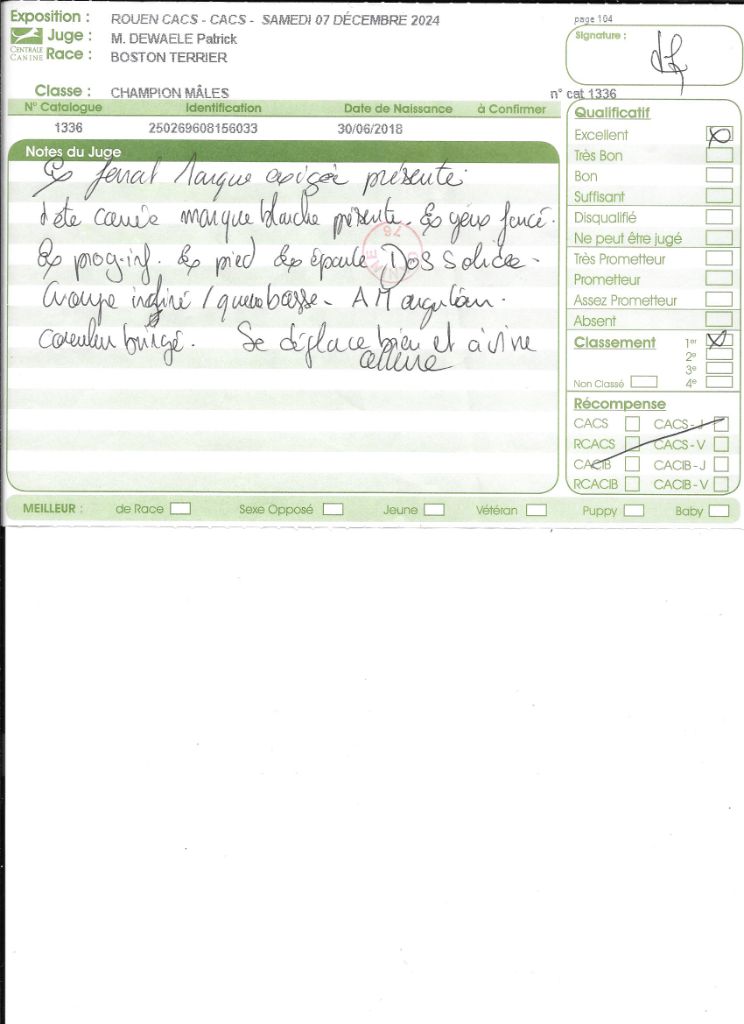 Exposition : ROUEN CACS - CACS - SAMEDI 07 DÉCEMBRE 2024
Juge : M. DEWAELE Patrick
CENTRALE CANINE
Race : BOSTON TERRIER
Classe : CHAMPION MÂLES
page 104
Signature :
n° cat 1336
N° Catalogue Identification Date de Naissance à Confirmer
1336 250269608156033 30/06/2018
Notes du Juge
Ex format Marque exigée présente.
tête carrée marque blanche présente. Ex yeux foncé.
Ex prog-inf. Ex pied Ex épaule Dos solide -
Croupe incliné / queue basse - AM angulation.
couleur bringé. Se déplace bien et à vive
allure
78
Qualificatif
Excellent
Très Bon
Bon
Suffisant
Disqualifié
Ne peut être jugé
Très Prometteur
Prometteur
Assez Prometteur
Absent
Classement 1er
2e
3e
Non Classé 4e
Récompense
CACS CACS - J
RCACS CACS - V
CACIB CACIB - J
RCACIB CACIB - V
MEILLEUR : de Race Sexe Opposé Jeune Vétéran Puppy Baby